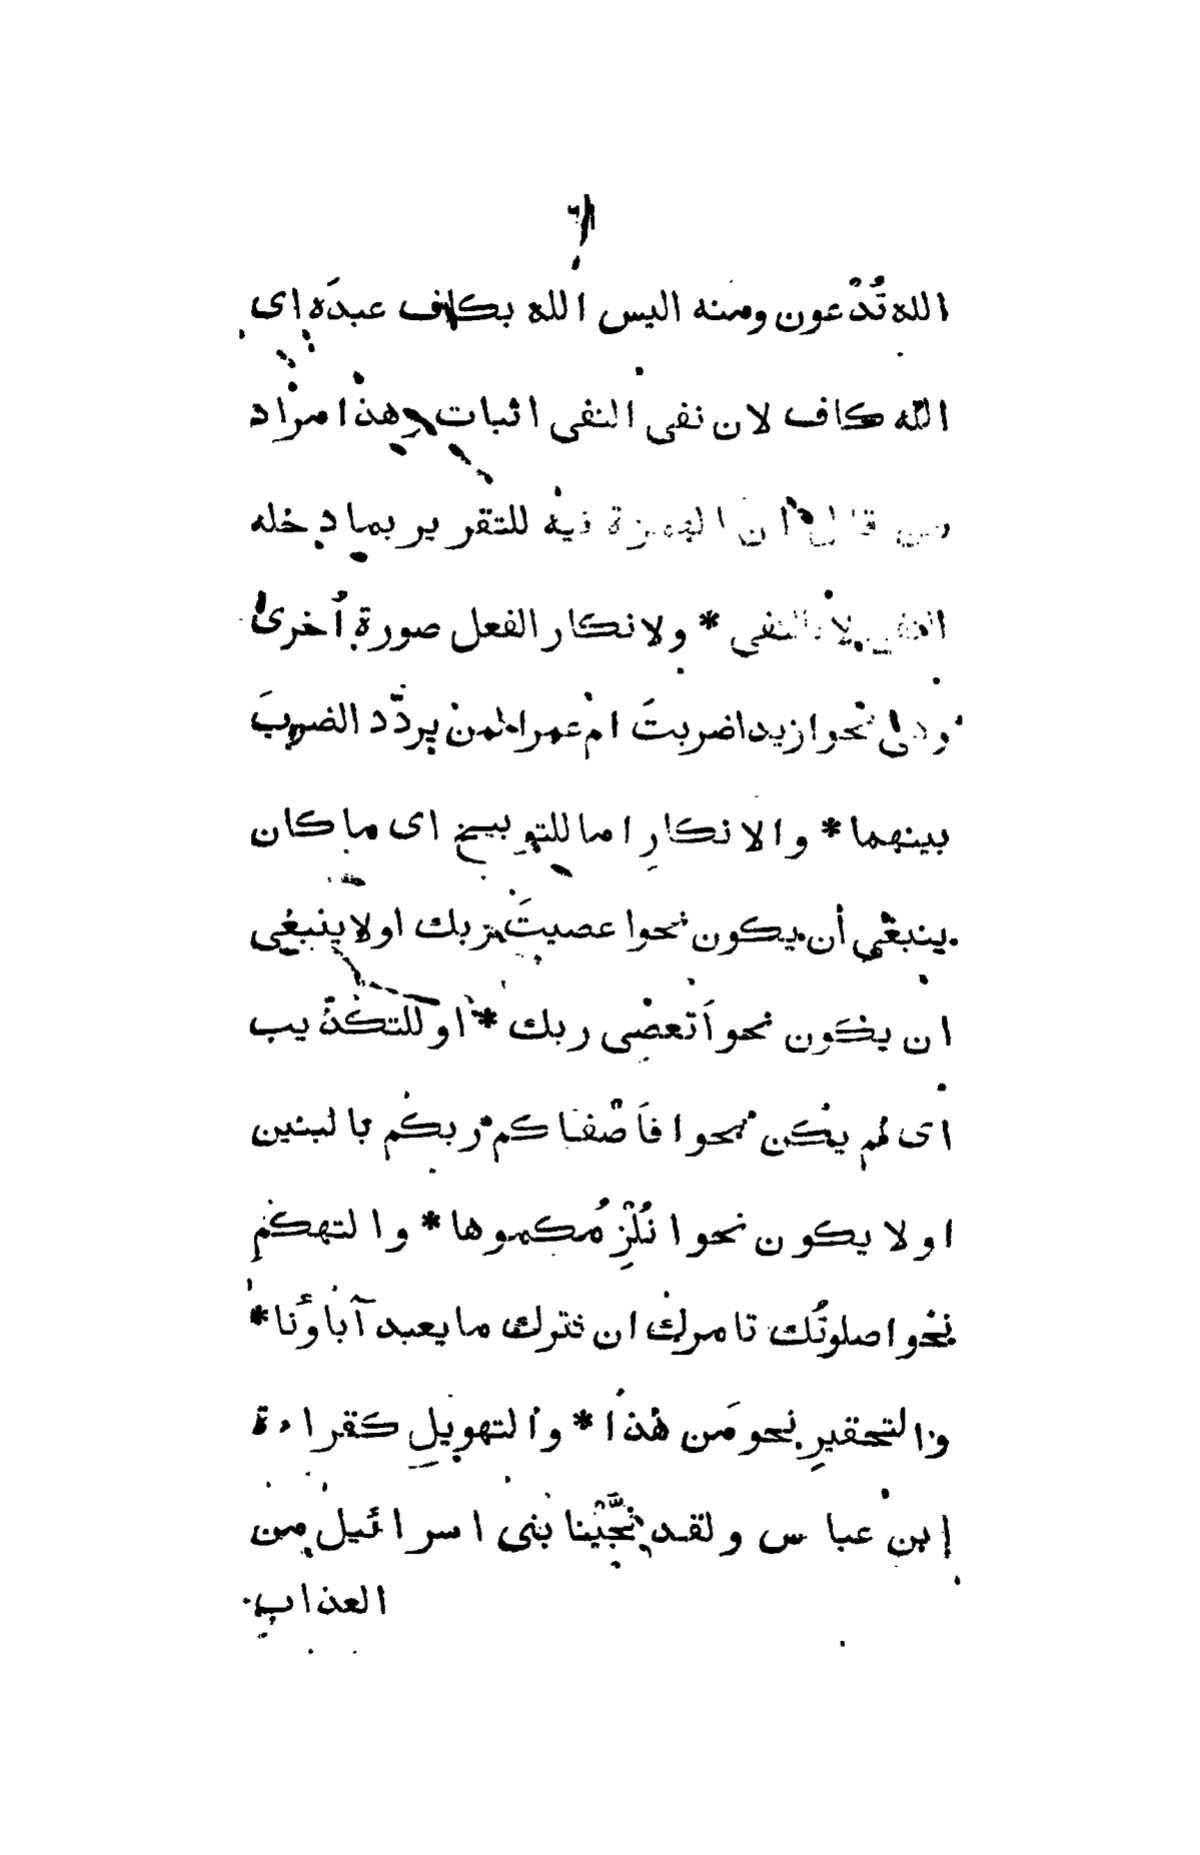 الله تُدْعون ومنه اليس الله بكاف عبدَه اى
الله كاف لان نفى النفى اثبات وهذا مراد
من قال ان الهمزة فيه للتقرير بما دخله
النفى لا بالنفى * ولانكار الفعل صورة أُخرى
وهى نحو ازيدا ضربتَ ام عمرا لمن يردّد الضربَ
بينهما * والانكارِ اما للتوبيخ اى ما كان
ينبغى أن يكون نحوا عصيتَ ربك اولا ينبغى
ان يكون نحو اَتعصى ربك * او للتكذيب
اى لم يكن نحوا فاَصْفاكم ربكم بالبنين
اولا يكون نحوا نُلْزِمُكموها * والتهكمِ
نحوا صلوتُك تامرك ان نترك ما يعبد آباؤُنا *
والتحقيرِ نحو مَن هذا * والتهويلِ كقراءة
إبن عباس ولقد نجَّيْنا بنى اسرائيل من
العذاب